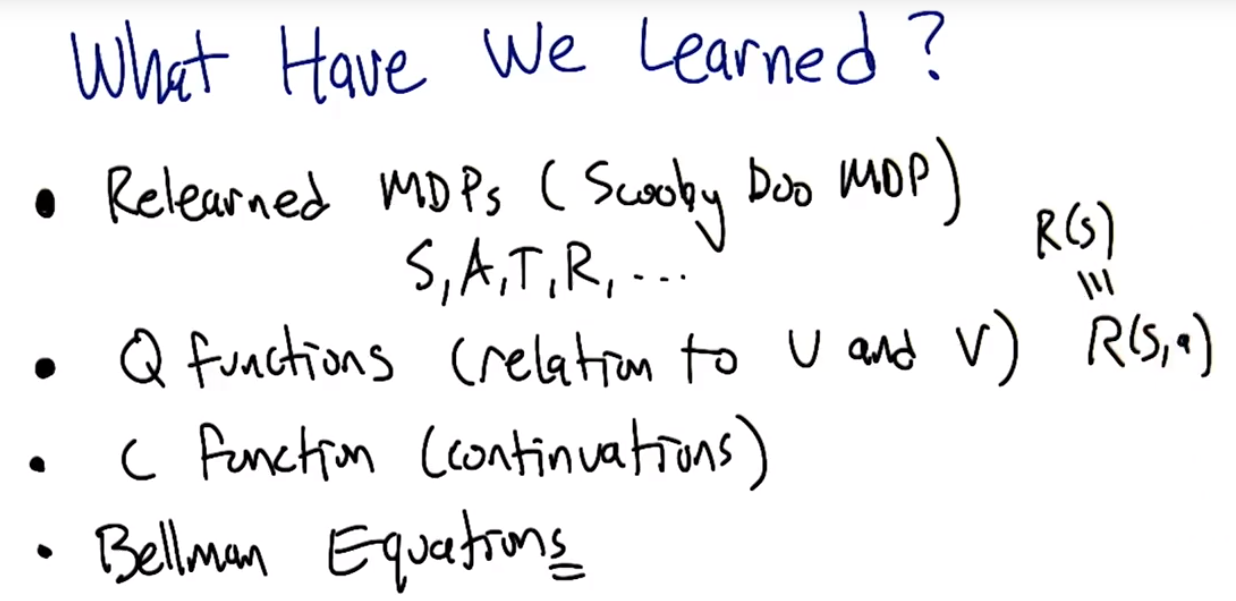 What Have We Learned?
• Relearned MDPs (Scooby Doo MDP)
S, A, T, R, ...
R(s)
≡
R(s,a)
• Q functions (relation to U and V)
• C function (continuations)
• Bellman Equations